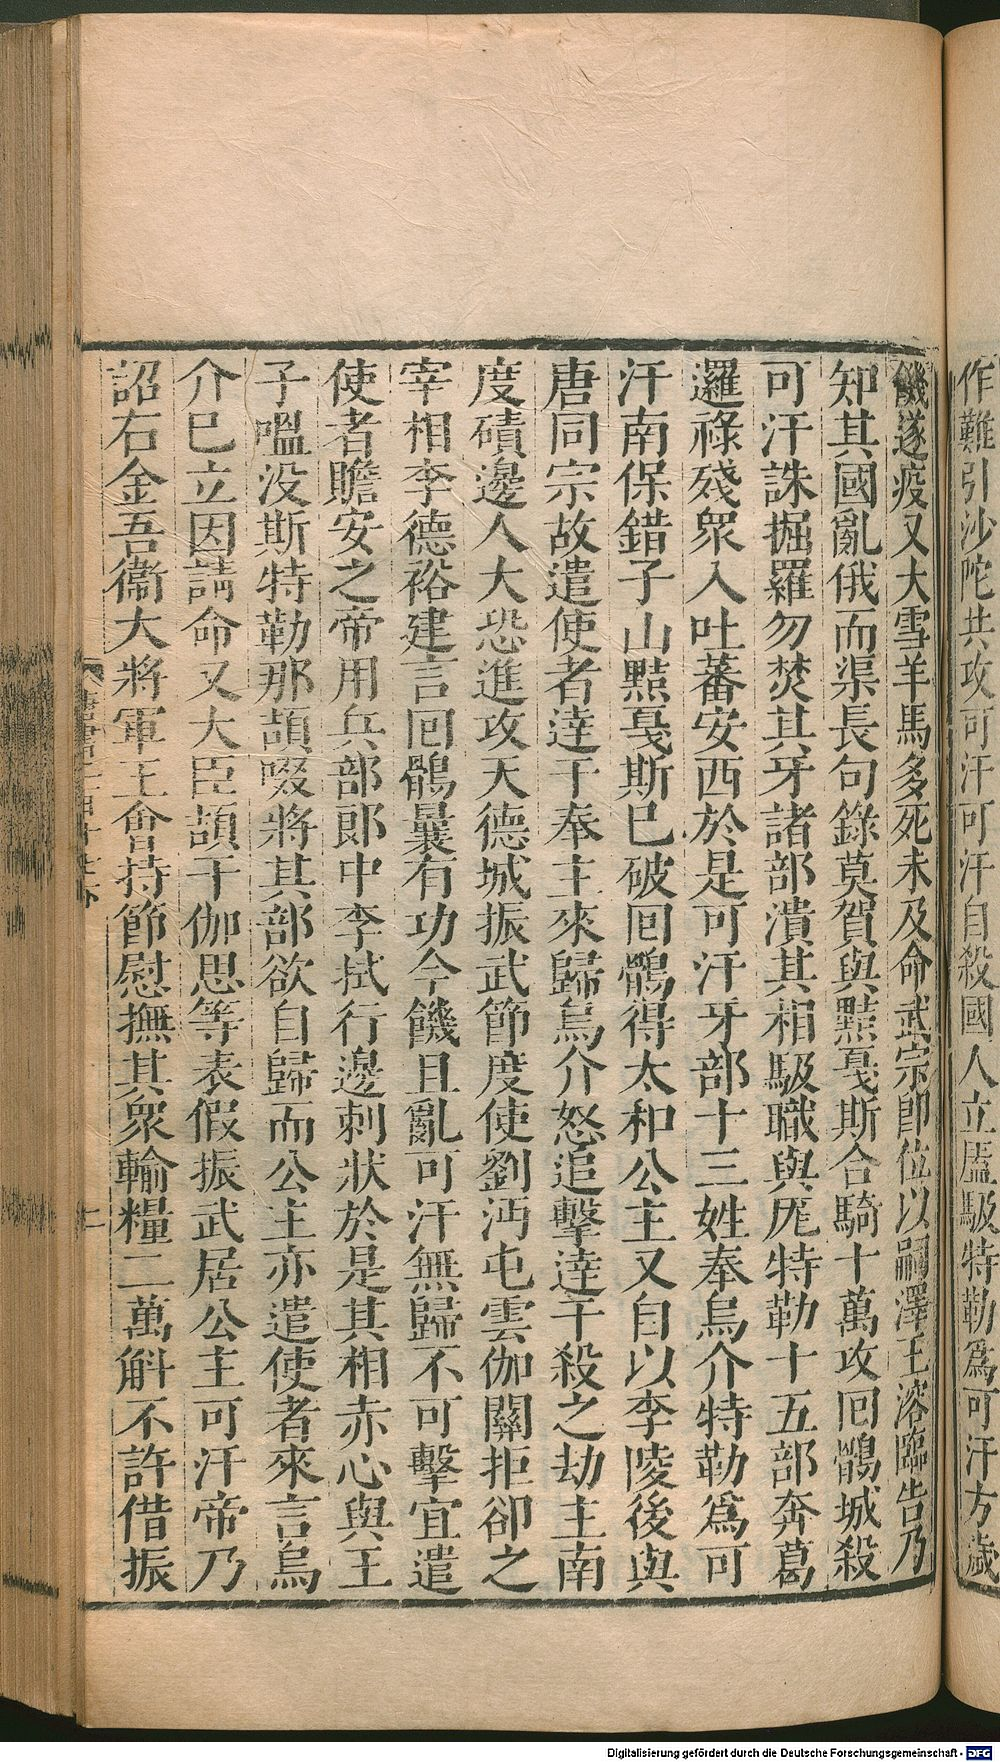 作難引沙陀共攻可汗可汗自殺國人立㕎馺特勒爲可汗方歲
饑遂疫又大雪羊馬多死未及命武宗卽位以嗣澤王溶臨告乃
知其國亂俄而渠長句錄莫賀與黠戛斯合騎十萬攻回鶻城殺
可汗誅掘羅勿焚其牙諸部潰其相馺職與厖特勒十五部奔葛
邏祿殘衆入吐蕃安西於是可汗牙部十三姓奉烏介特勒爲可
汗南保錯子山黠戛斯已破回鶻得太和公主又自以李陵後與
唐同宗故遣使者達干奉主來歸烏介怒追擊達干殺之劫主南
度磧邊人大恐進攻天德城振武節度使劉沔屯雲伽關拒卻之
宰相李德裕建言回鶻曩有功今饑且亂可汗無歸不可擊宜遣
使者贍安之帝用兵部郎中李拭行邊刺狀於是其相赤心與王
子嗢没斯特勒那頡啜將其部欲自歸而公主亦遣使者來言烏
介已立因請命又大臣頡干伽思等表假振武居公主可汗帝乃
詔右金吾衞大將軍王會持節慰撫其衆輸糧二萬斛不許借振
Digitalisierung gefördert durch die Deutsche Forschungsgemeinschaft - DFG